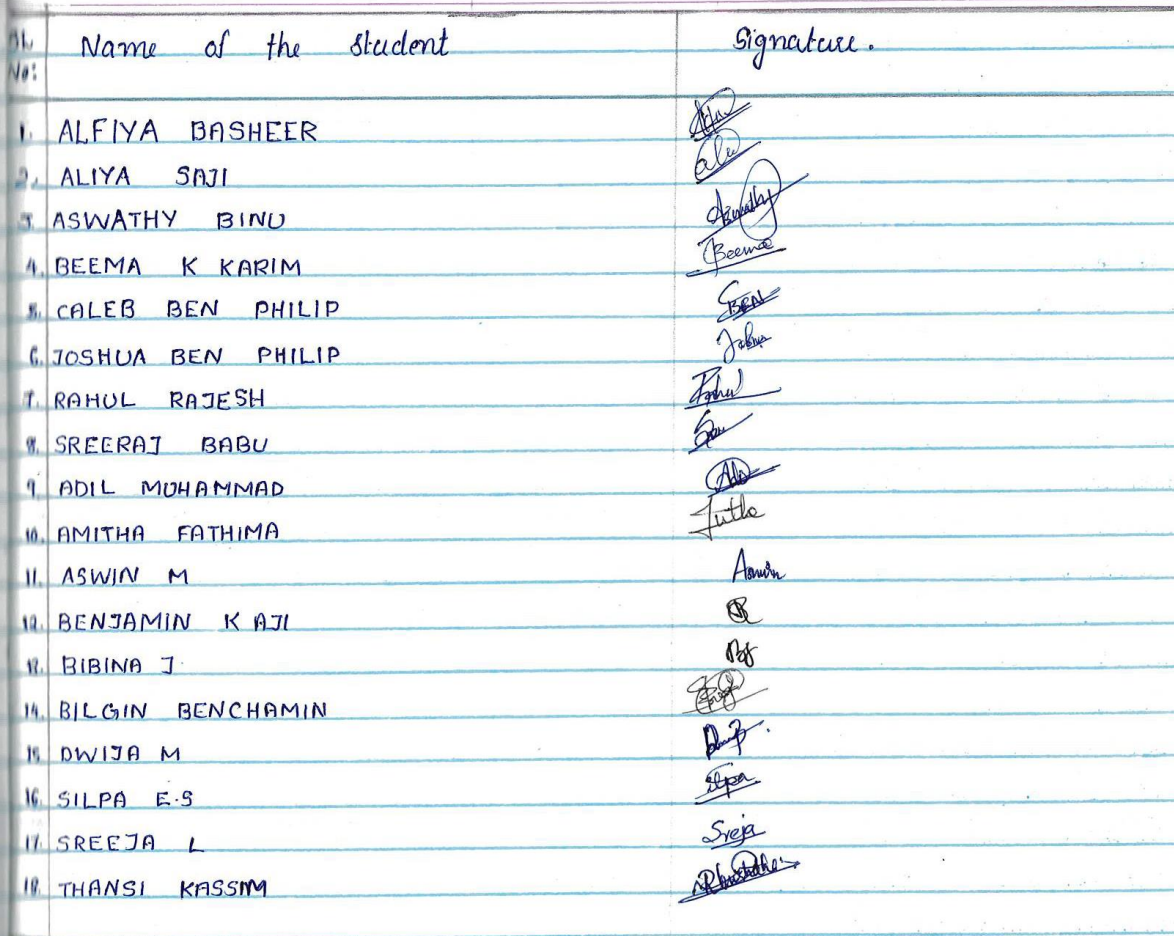 Sl. Name of the student Signature.
No:
1. ALFIYA BASHEER
2. ALIYA SAJI
3. ASWATHY BINU Aswathy
4. BEEMA K KARIM Beema
5. CALEB BEN PHILIP BEN
6. JOSHUA BEN PHILIP
7. RAHUL RAJESH Rahul
8. SREERAJ BABU
9. ADIL MUHAMMAD
10. AMITHA FATHIMA
11. ASWIN M Aswin
12. BENJAMIN K AJI
13. BIBINA J
14. BILGIN BENCHAMIN
15. DWIJA M
16. SILPA E.S Silpa
17. SREEJA L Sreja
18. THANSI KASSIM